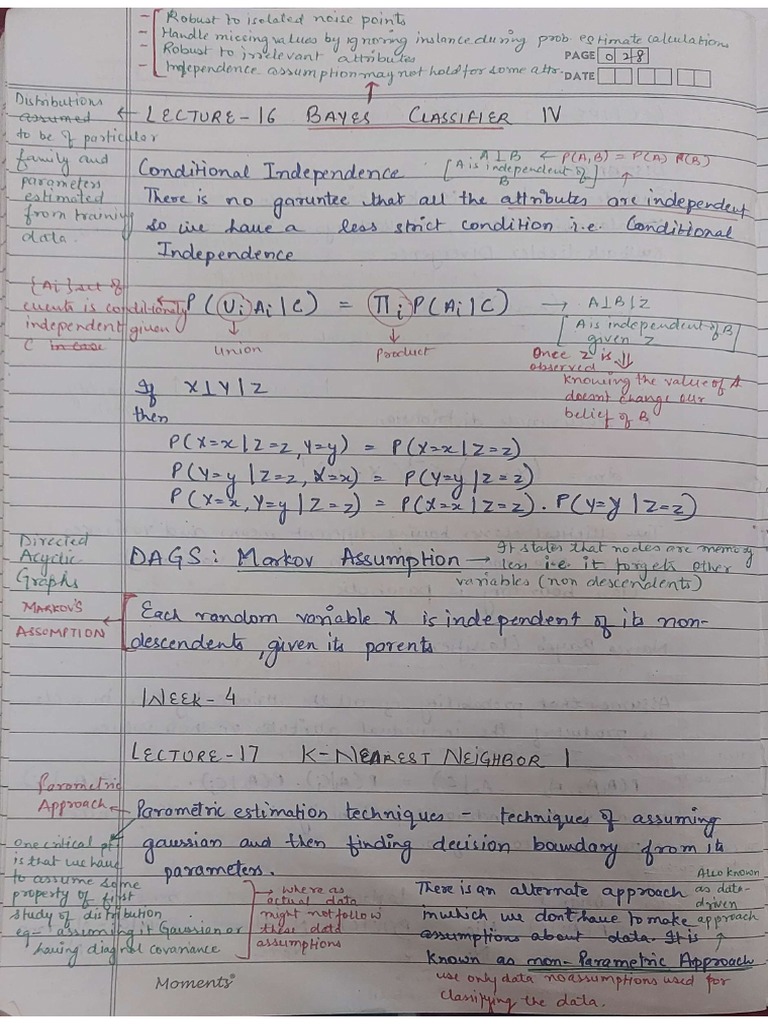 - Robust to isolated noise points
- Handle missing values by ignoring instance during prob. estimate calculations
- Robust to irrelevant attributes
- Independence assumption may not hold for some attr.
PAGE 0 2 8
DATE
Distributions
assumed
to be of particular
family and
parameters
estimated
from training
data.
LECTURE-16 BAYES CLASSIFIER IV
Conditional Independence
A⊥B ← P(A,B) = P(A) P(B)
[A is independent of B]
There is no garuntee that all the attributes are independent
so we have a less strict condition i.e. Conditional
Independence
{Ai} set of
events is conditionaly
independent given
C in case
P(∪i Ai | C) = Πi P(Ai | C) → A⊥B|Z
Union
Product
[A is independent of B
given Z]
Once Z is
observed
knowing the value of A
doesn't change our
belief of B
If X⊥Y|Z
then
P(X=x | Z=z, Y=y) = P(X=x | Z=z)
P(Y=y | Z=z, X=x) = P(Y=y | Z=z)
P(X=x, Y=y | Z=z) = P(X=x | Z=z) . P(Y=y | Z=z)
Directed
Acyclic
Graphs
DAGS : Markov Assumption → It states that nodes are memory
less i.e. it forgets other
variables (non descendents)
MARKOV'S
ASSUMPTION
Each random variable X is independent of its non-
descendents, given its parents
WEEK-4
LECTURE-17 K-NEAREST NEIGHBOR I
Parametric
Approach
Parametric estimation techniques - techniques of assuming
gaussian and then finding decision boundary from its
parameters.
One critical pt
is that we have
to assume some
property of first
study of distribution
eg- assuming it Gaussian or
having diagnol covariance
→ where as
actual data
might not follow
these data
assumptions
There is an alternate approach
in which we don't have to make
assumptions about data. It is
known as non-Parametric Approach
Also known
as data-
driven
approach
use only data no assumptions used for
classifying the data.
Moments